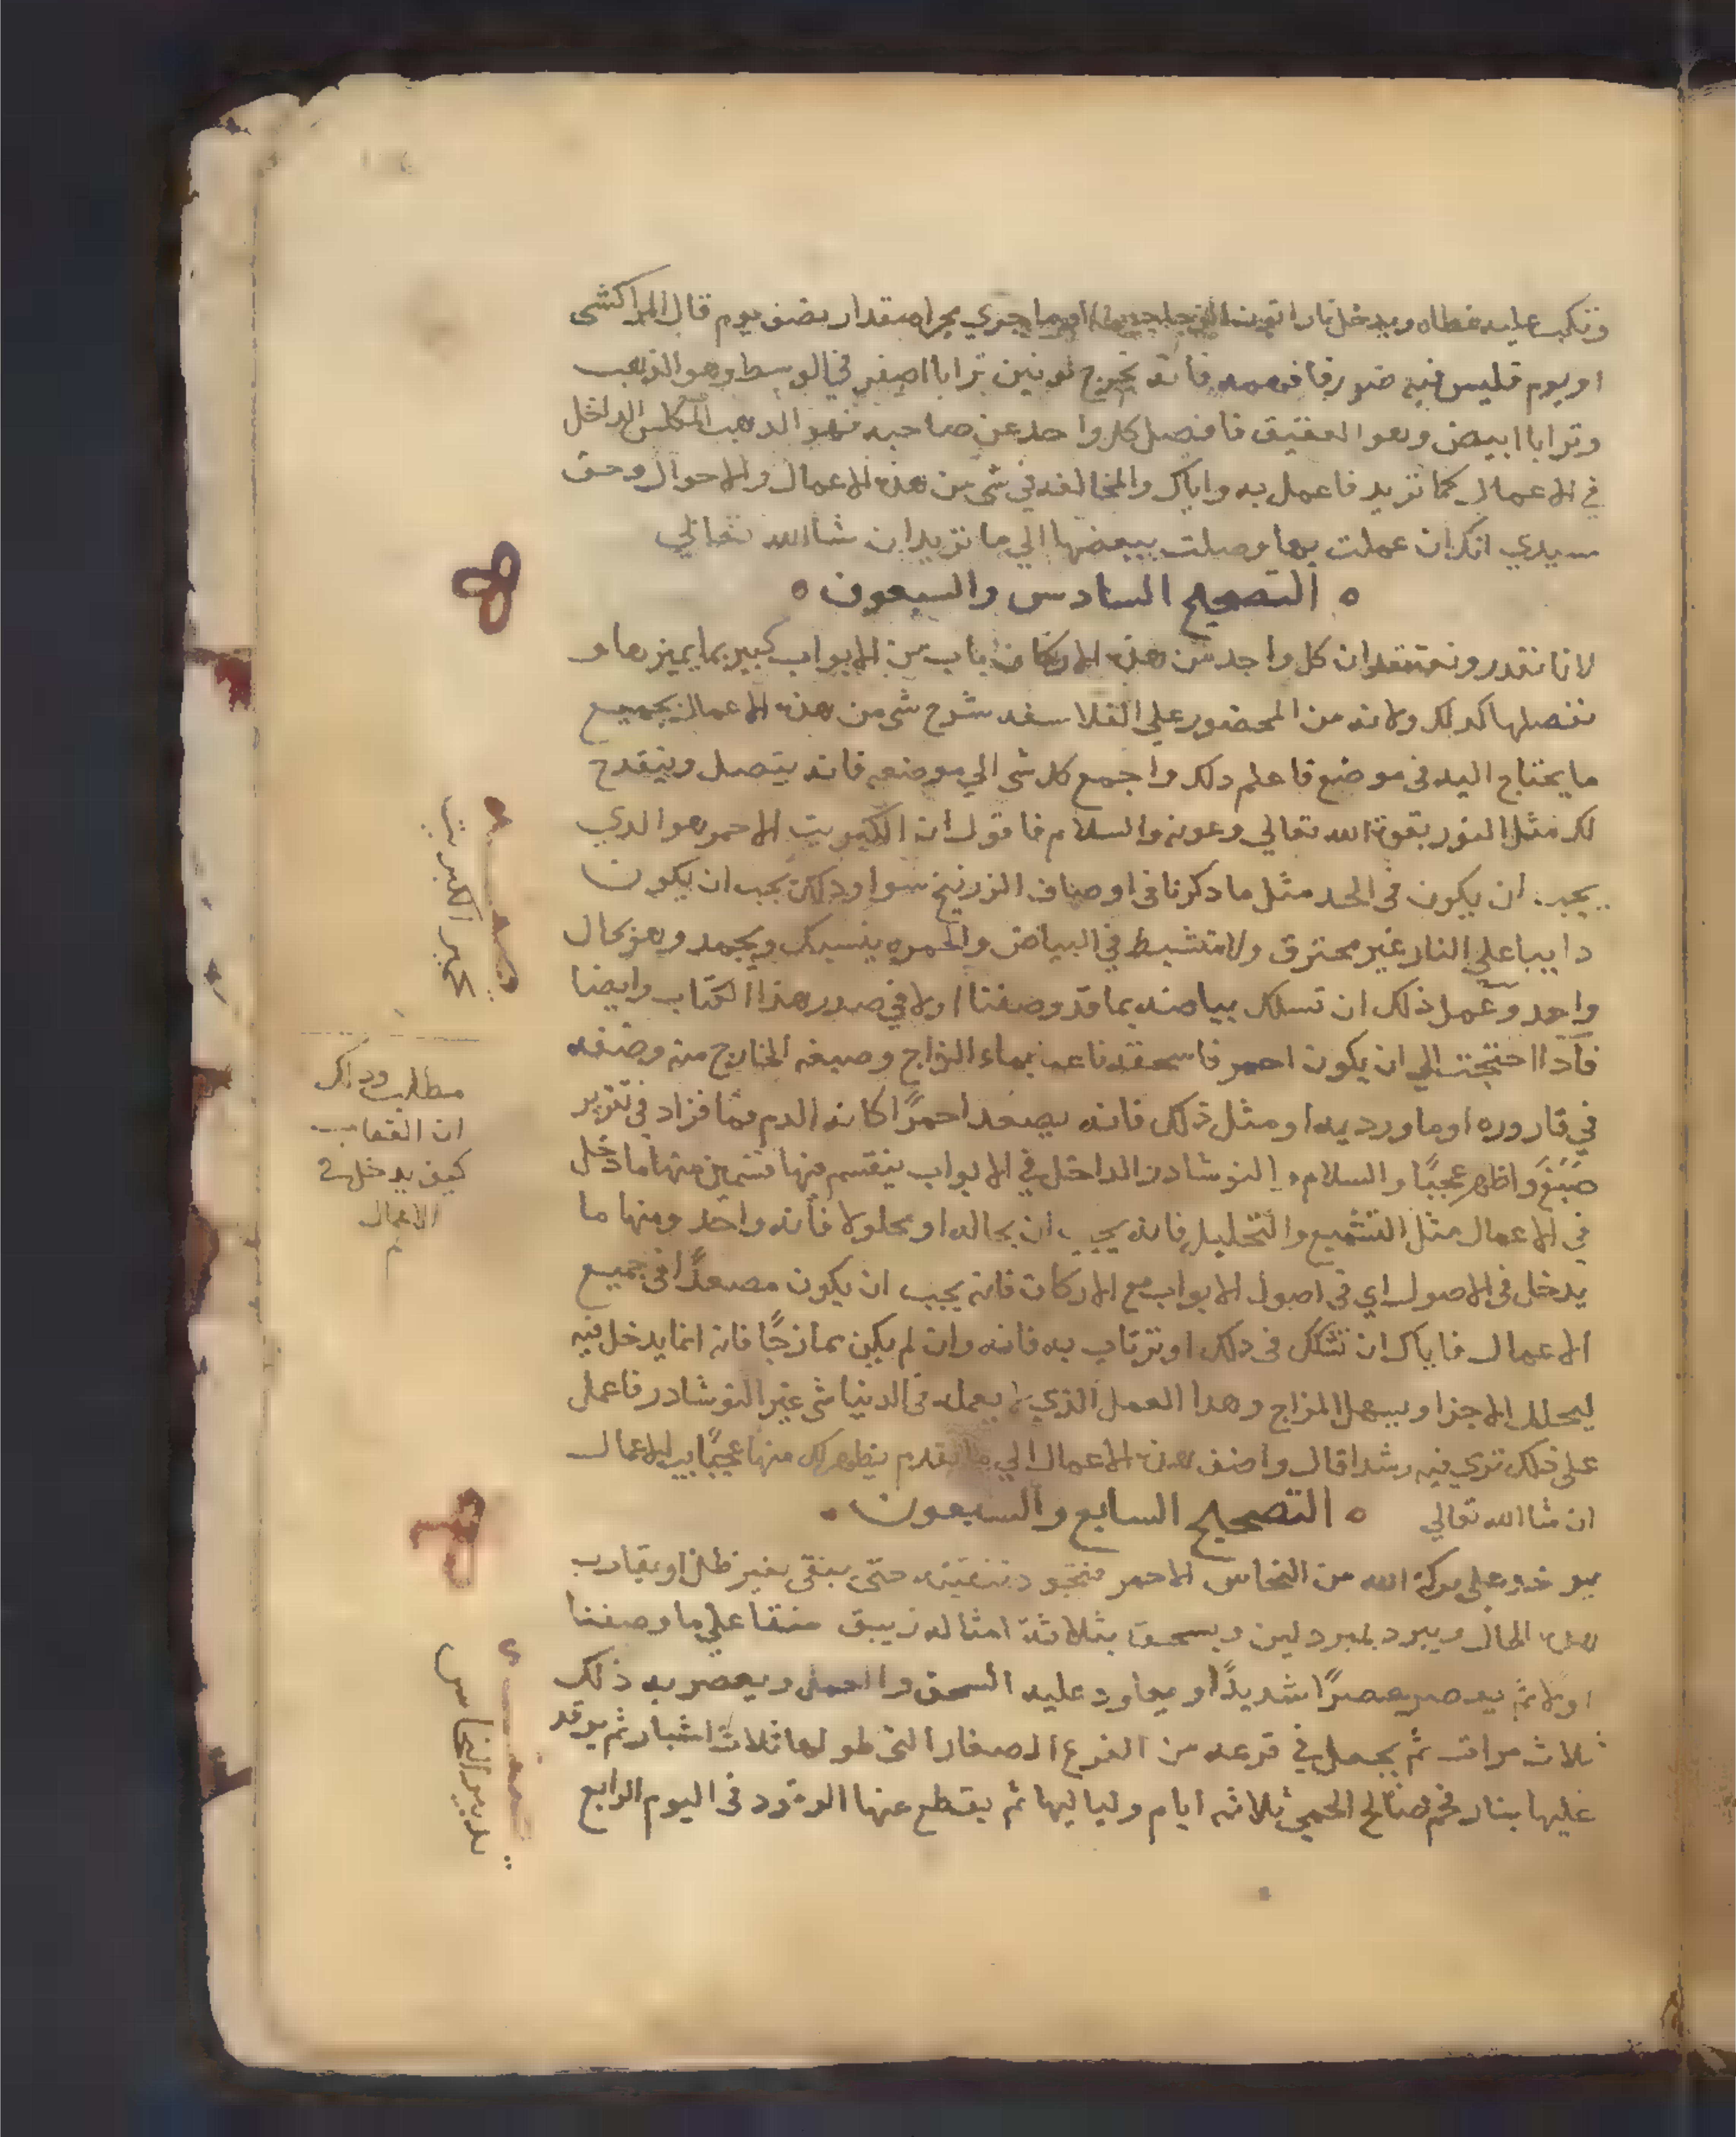 وتكب عليه غطاه ويدخل نارا اتون الزجاجين او ما جري مجراه مقدار نصف يوم قال المراكشى
او يوم فليس فيه ضرر فافهمه فانه يخرج لونين ترابا اصفر في الوسط وهو الذهب
وترابا ابيض وهو العقيق فافصل كل واحد عن صاحبه فهو الدهب المكلس الداخل
في الاعمال كما تريد فاعمل به واياك والمخالفه في شي من هذه الاعمال والاحوال وحق
سيدي انك ان عملت بها وصلت ببعضها الي ما تريد ان شا الله تعالي
ه التصحيح السادس والسبعون ه
لانا نقدر ونعتقد ان كل واحد من هذه الاركان باب من الابواب كبير بما يميزها و
نفصلها كدلك ولانه من المحضور علي الفلاسفه شرح شي من هذه الاعمال بجميع
ما يحتاج اليه في موضع فاعلم دلك واجمع كل شي الي موضعه فانه يتصل وينقدح
لك مثل النور بقوة الله تعالي وعونه والسلام فاقول ان الكبريت الاحمر هو الدي
يجب ان يكون في الحد مثل ما دكرنا في اوصاف الزرنيخ سوا ودلك يجب ان يكون
دايبا علي النار غير محترق ولا متشيط في البياض والحمره ينسبك ويجمد وهو بحال
واحد وعمل ذلك ان تسلك بياضه بما قد وصفنا اولا في صدر هذا الكتاب وايضا
فاذا احتجت الي ان يكون احمر فاسحقه ناعما بماء الزاج وصبغه الخارج منه وضعه
في قاروره او ماورديه او مثل ذلك فانه يصعد احمرًا كانه الدم فما فزاد في تزير
صَبَغَ واظهر عجبًا والسلام. النوشادر الداخل في الابواب ينقسم منها قسمين منها ما دخل
في الاعمال مثل التشميع والتحليل فانه يجب ان بحاله او محلولا فانه واحد ومنها ما
يدخل في الاصول اي في اصول الابواب مع الاركان فانه يجب ان يكون مصعدًا في جميع
الاعمال فاياك ان تشكك في دلك او ترتاب به فانه وان لم يكن ممازجًا فانه انما يدخل فيه
ليحلل الاجزا ويسهل المزاج وهدا العمل الذي لا يعمله في الدنيا شي غير النوشادر فاعمل
علي ذلك تري فيه رشدا قال واضف هذه الاعمال الي ما تقدم يظهر لك منها عجبًا بير الاعمال
ان شا الله تعالي ه التصحيح السابع والسبعون ه
يوخد علي بركة الله من النحاس الاحمر فتجود تنقيته حتي يبقي بغير ظل او يقارب
هده الحال ويبرد بمبرد لين ويسحق بثلاثة امثاله زيبق منقا علي ما وصفنا
اولا ثم يعصر عصرًا شديدًا ويعاود عليه السحق والعمل ويعصر به ذلك
ثلاث مرات ثم يجعل في قرعه من القرع الصغار التي طولها ثلاث اشبار ثم يوقد
عليها بنار فحم صالح الحمي ثلاثه ايام ولياليها ثم يقطع عنها الوقود في اليوم الرابع
مطلب ودلك
ان العقاب
كيف يدخل في
الاعمال
م
تدبير النحاس